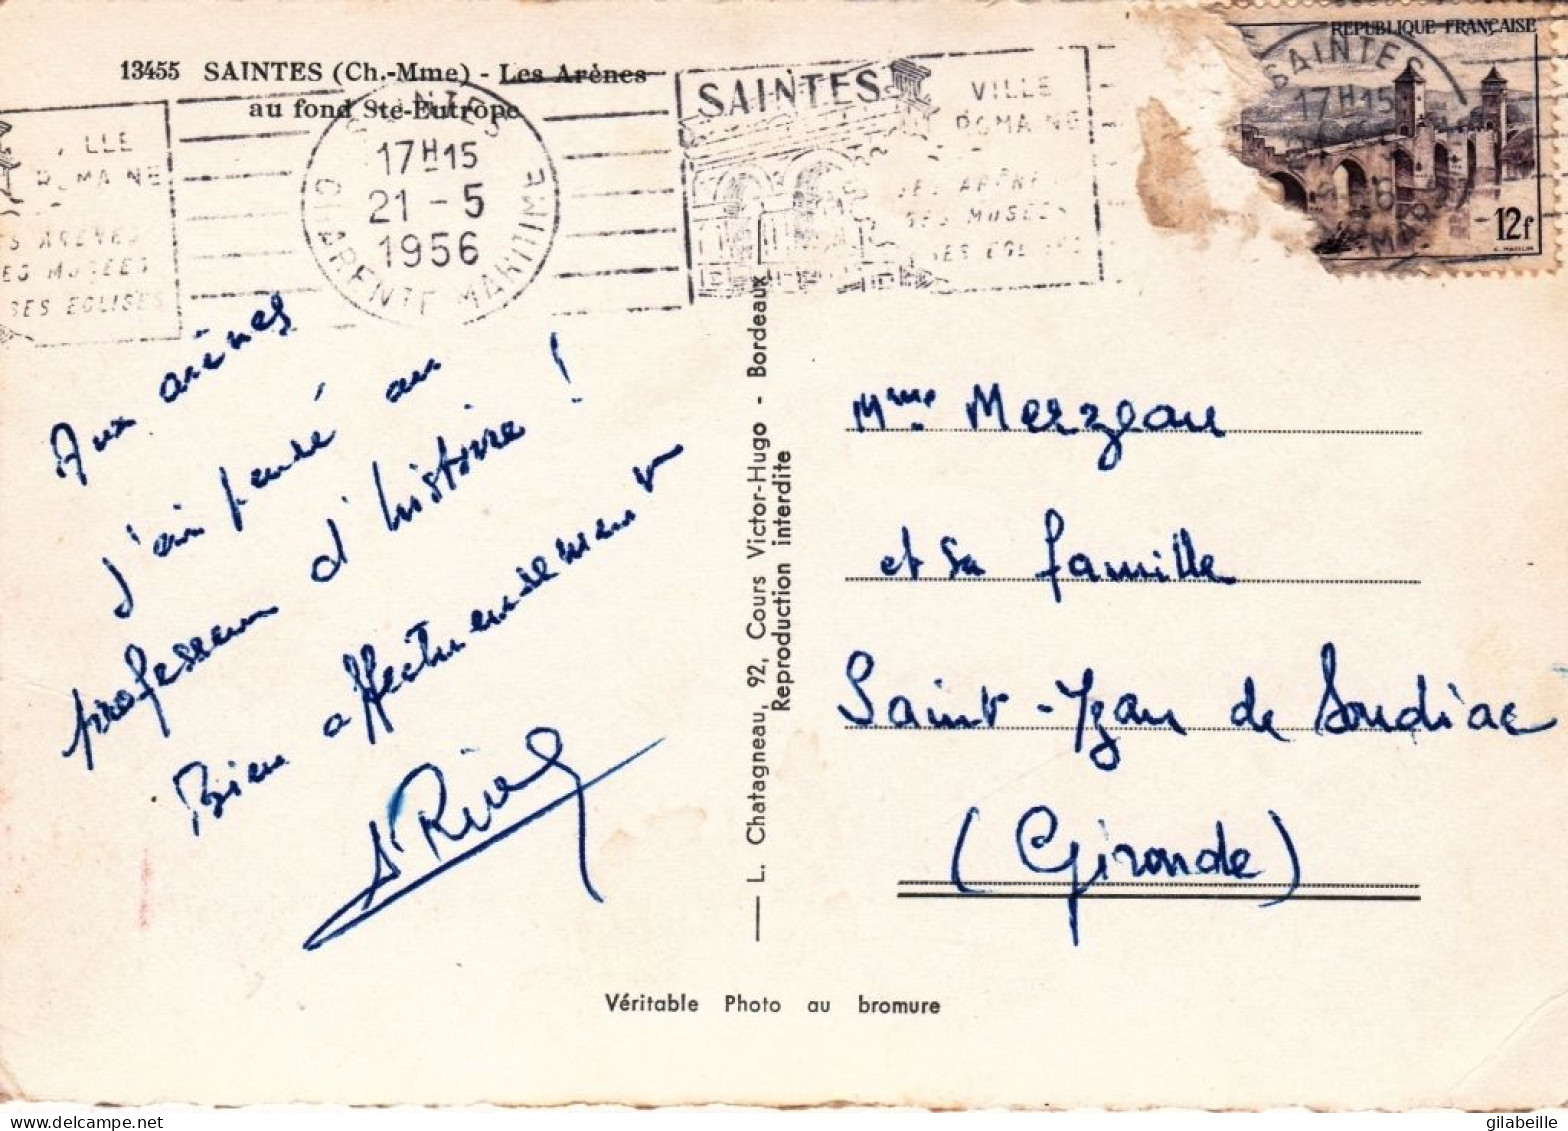 13455 SAINTES (Ch.-Mme) - Les Arènes
au fond Ste-Eutrope
VILLE
ROMAINE
SES ARENES
SES MUSEES
SES EGLISES
SAINTES
17H15
21 - 5
1956
CHARENTE MARITIME
SAINTES
VILLE
ROMAINE
SES ARENES
SES MUSEES
SES EGLISES
REPUBLIQUE FRANÇAISE
SAINTES
17H15
12f
Aux arènes
j'ai pensé au
professeur d'histoire !
Bien affectueusement
L. Chatagneau, 92, Cours Victor-Hugo - Bordeaux
Reproduction interdite
Mme Merzeau
et sa famille
Saint-Yzan de Soudiac
(Gironde)
Véritable Photo au bromure
gilabeille